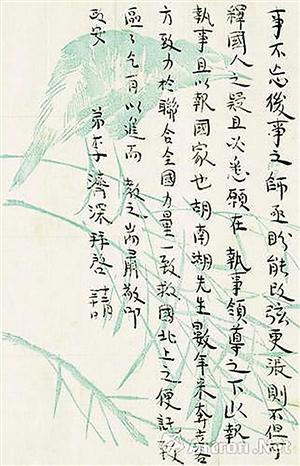 事不忘後事之師亟盼能改弦更張則不但可
釋國人之疑且必忠願在 執事領導之下以報
執事且以報國家也胡南湖先生數年來奔走各
方致力於聯合全國力量一致救國北上之便託致
區〻乞有以進而 教之尚肅敬叩
政安
弟李濟深拜啓
Artron.Net